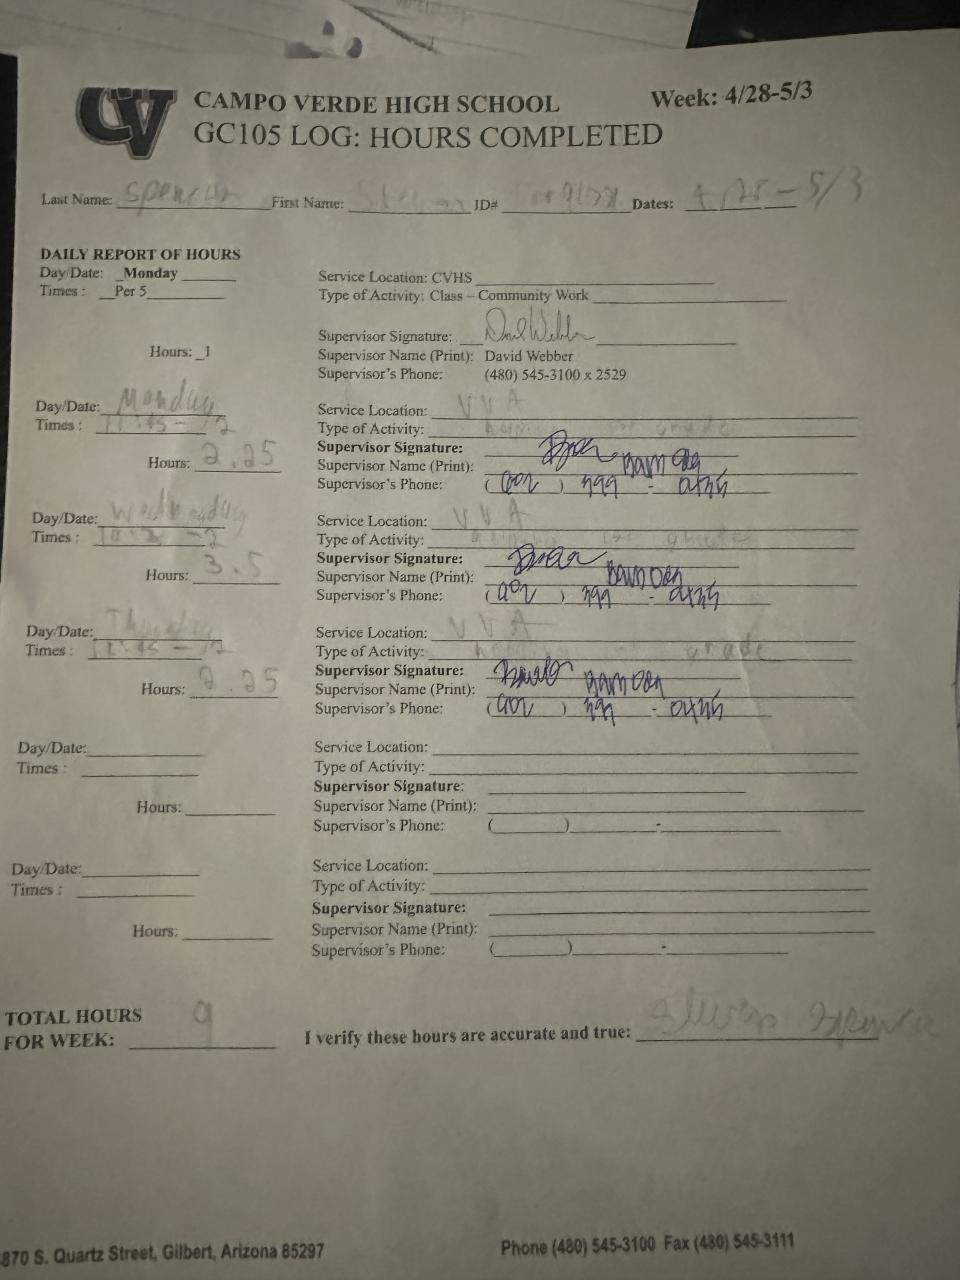 CV CAMPO VERDE HIGH SCHOOL Week: 4/28-5/3
GC105 LOG: HOURS COMPLETED
Last Name: Spencer First Name: Steven ID# Dates: 4/28-5/3
DAILY REPORT OF HOURS
Day/Date: Monday Service Location: CVHS
Times : Per 5 Type of Activity: Class – Community Work
Supervisor Signature: David Webber
Hours: 1 Supervisor Name (Print): David Webber
Supervisor's Phone: (480) 545-3100 x 2529
Day/Date: Monday Service Location: VVA
Times : 11:45-12 Type of Activity: helping 1st grade
Supervisor Signature:
Hours: 2.25 Supervisor Name (Print):
Supervisor's Phone: ( ) -
Day/Date: Wednesday Service Location: VVA
Times : -2 Type of Activity: helping 1st grade
Supervisor Signature:
Hours: 3.5 Supervisor Name (Print):
Supervisor's Phone: ( ) -
Day/Date: Thursday Service Location: VVA
Times : 11:45-12 Type of Activity: helping grade
Supervisor Signature:
Hours: 2.25 Supervisor Name (Print):
Supervisor's Phone: ( ) -
Day/Date: Service Location:
Times : Type of Activity:
Supervisor Signature:
Hours: Supervisor Name (Print):
Supervisor's Phone: ( ) -
Day/Date: Service Location:
Times : Type of Activity:
Supervisor Signature:
Hours: Supervisor Name (Print):
Supervisor's Phone: ( ) -
TOTAL HOURS
FOR WEEK: 9 I verify these hours are accurate and true: Steven Spencer
870 S. Quartz Street, Gilbert, Arizona 85297 Phone (480) 545-3100 Fax (480) 545-3111